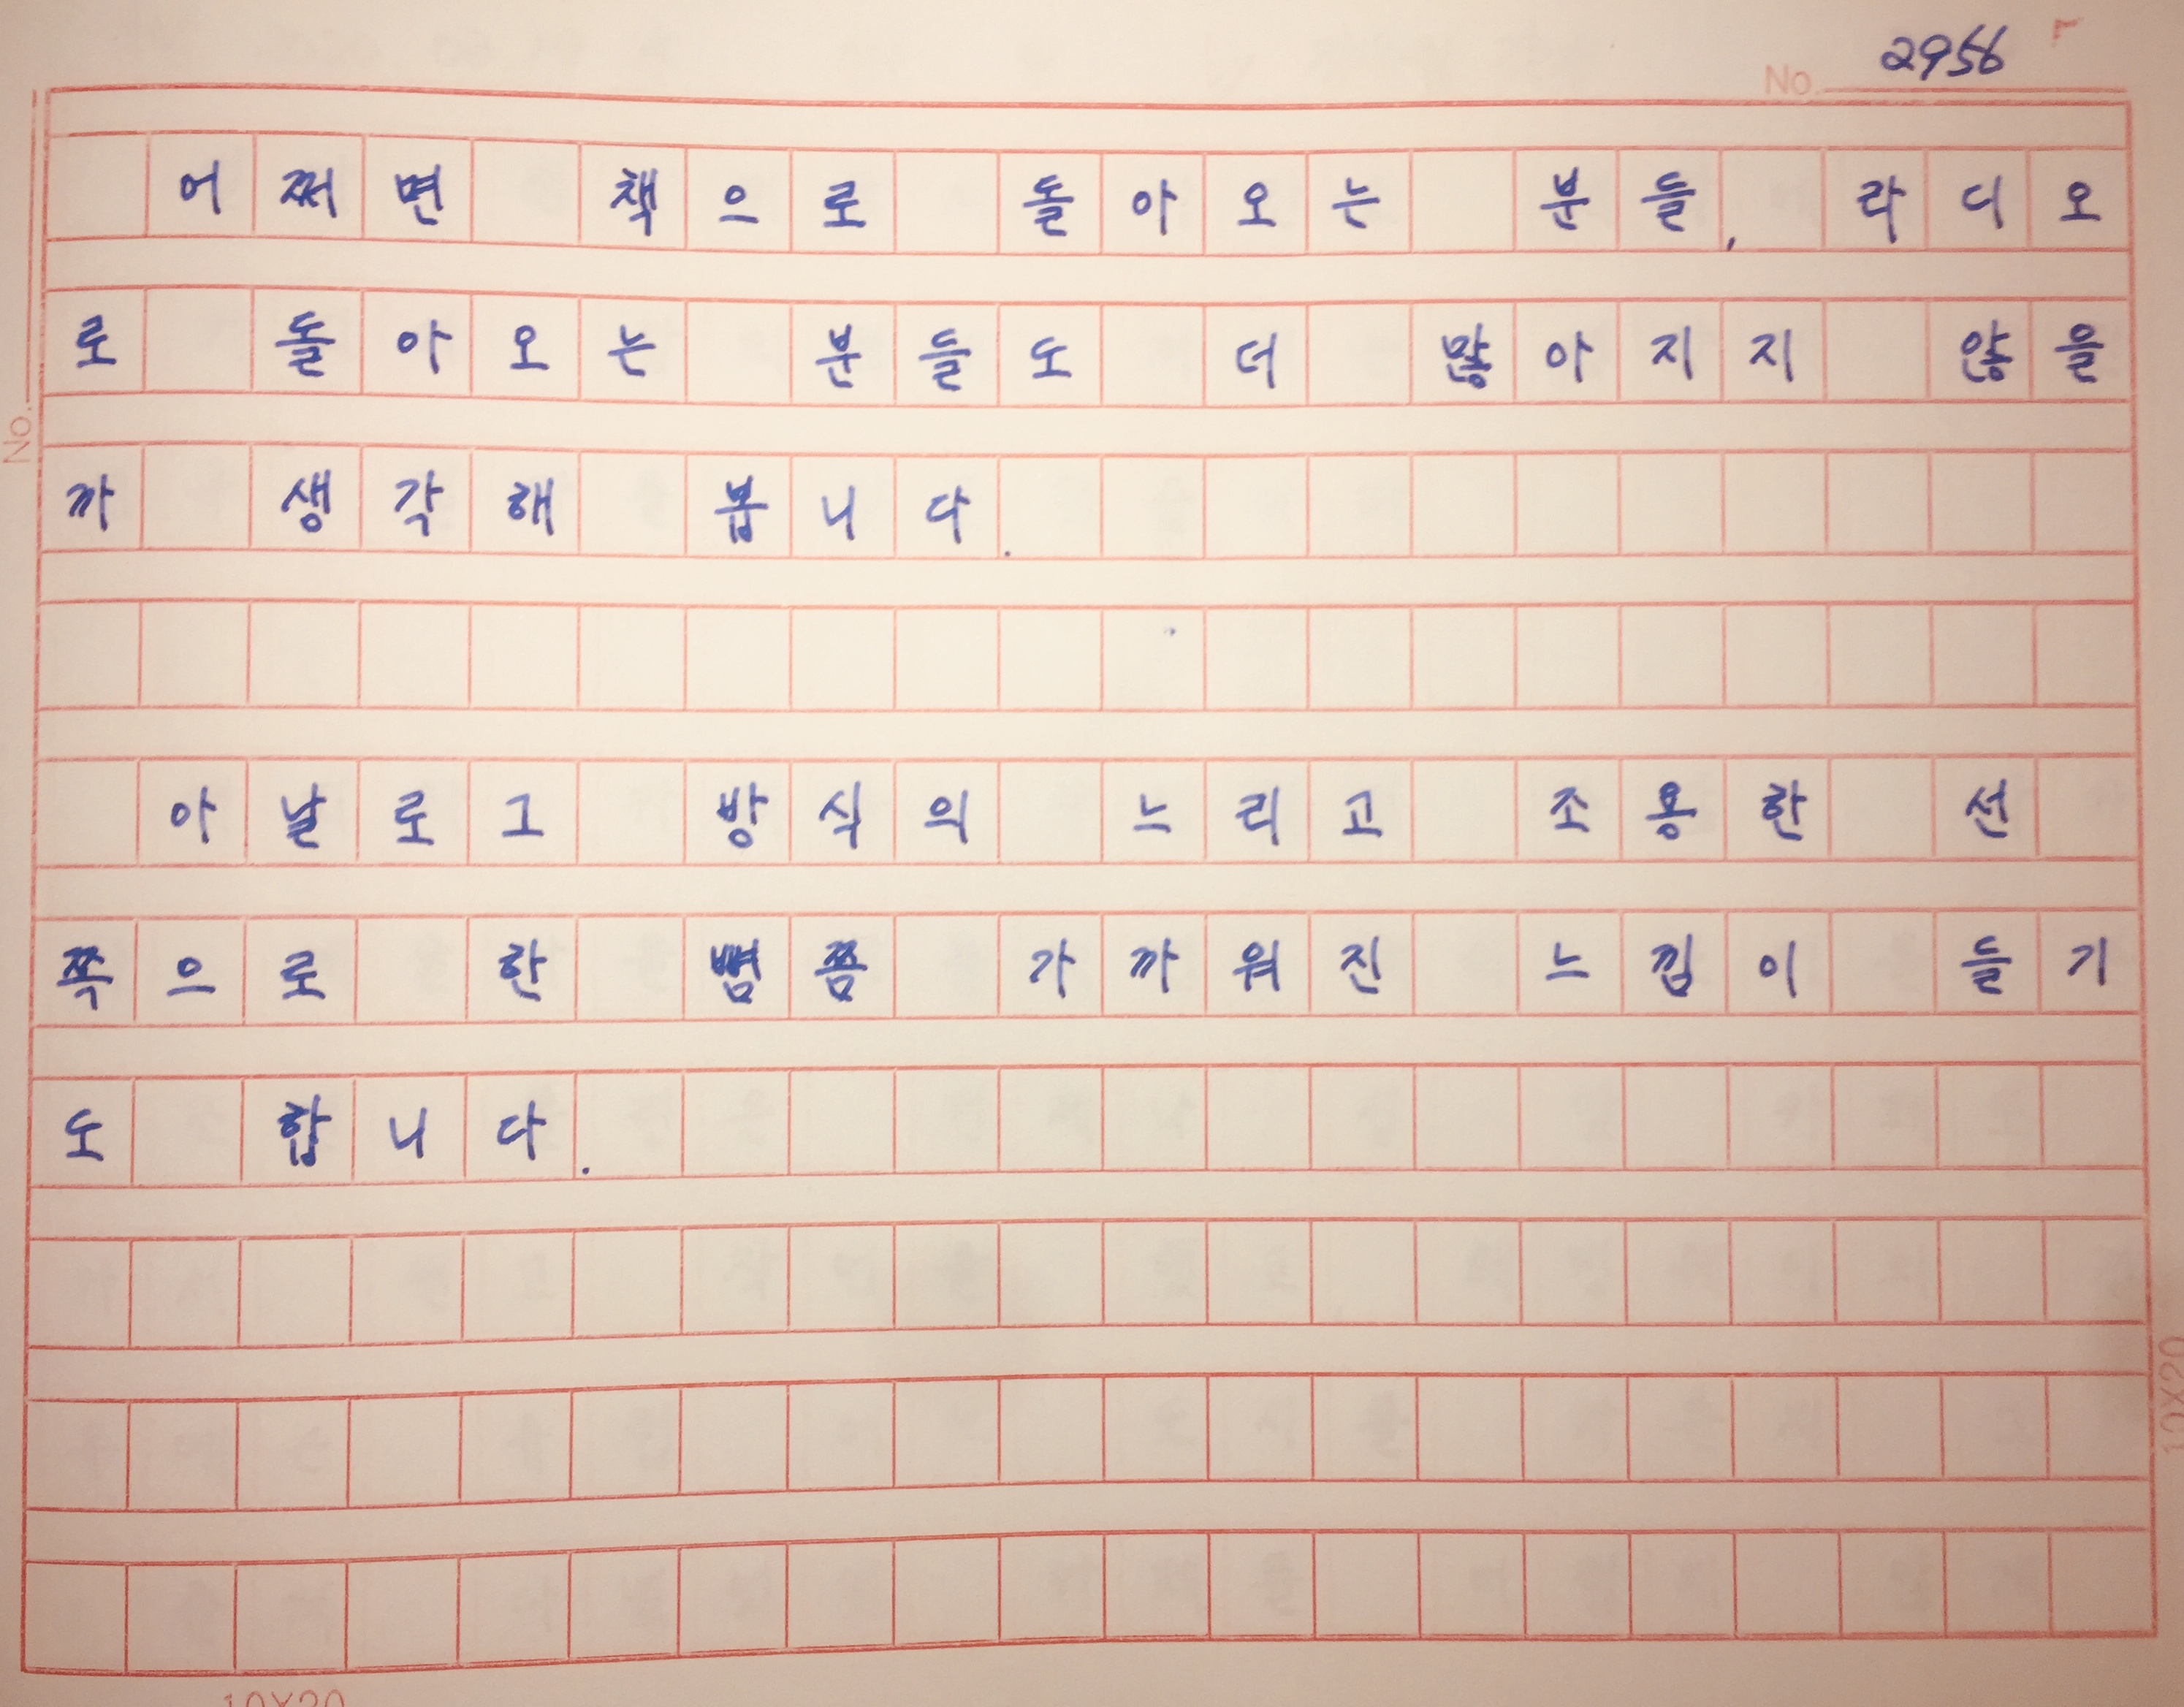 No. 2956
어쩌면 책으로 돌아오는 분들, 라디오
로 돌아오는 분들도 더 많아지지 않을
No.
까 생각해 봅니다.
아날로그 방식의 느리고 조용한 선
쪽으로 한 뼘쯤 가까워진 느낌이 들기
도 합니다.
10X20
10X20